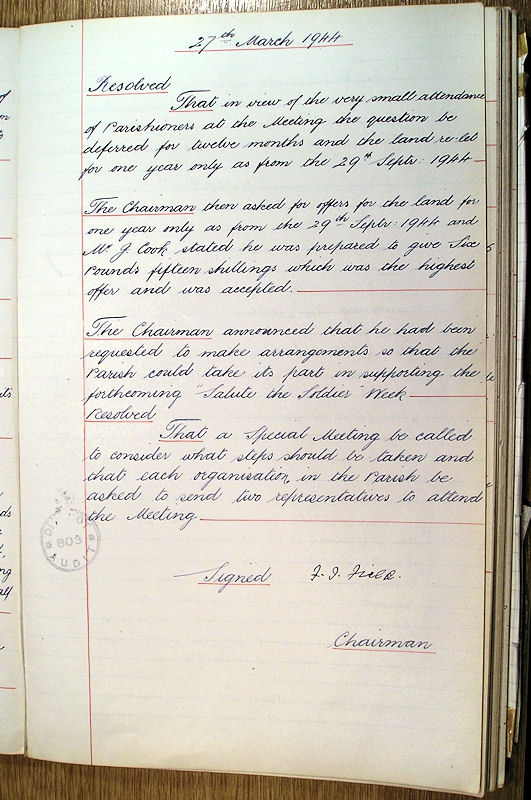 27th March 1944
Resolved
That in view of the very small attendance
of Parishioners at the Meeting the question be
deferred for twelve months and the land re-let
for one year only as from the 29th Septr: 1944
The Chairman then asked for offers for the land for
one year only as from the 29th Septr: 1944 and
Mr J. Cook stated he was prepared to give Six
Pounds fifteen shillings which was the highest
offer and was accepted.
The Chairman announced that he had been
requested to make arrangements so that the
Parish could take its part in supporting the
forthcoming "Salute the Soldier" Week
Resolved
That a Special Meeting be called
to consider what steps should be taken and
that each organisation, in the Parish be
asked to send two representatives to attend
the Meeting
Signed F. J. Field.
Chairman
803
AUDIT